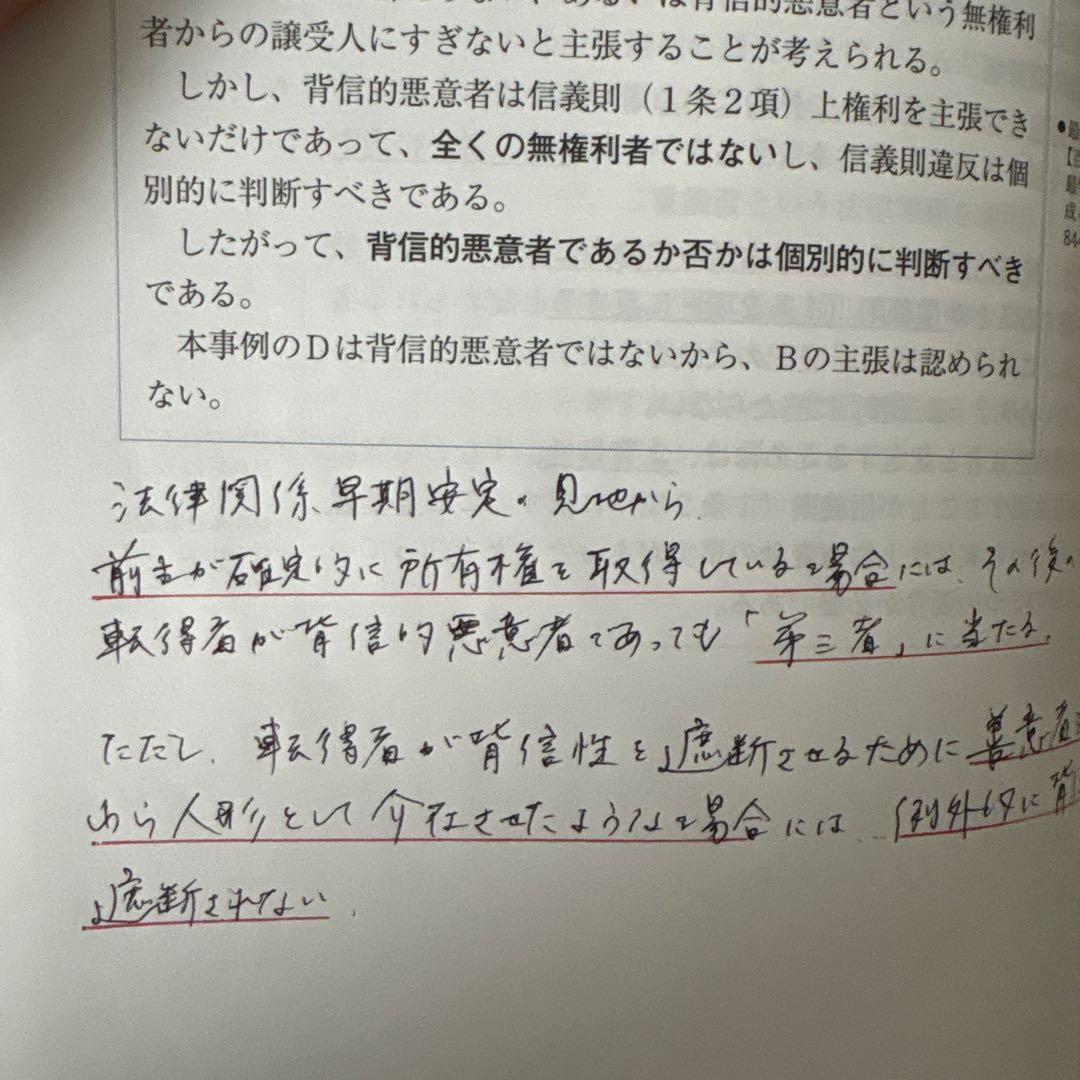 背信的悪意者という無権利
者からの譲受人にすぎないと主張することが考えられる。
しかし、背信的悪意者は信義則（１条２項）上権利を主張でき
ないだけであって、全くの無権利者ではないし、信義則違反は個
別的に判断すべきである。
したがって、背信的悪意者であるか否かは個別的に判断すべき
である。
本事例のＤは背信的悪意者ではないから、Ｂの主張は認められ
ない。
●最
【百
最
成
84
法律関係早期安定の見地から、
前主が確定的に所有権を取得している場合には、その後の
転得者が背信的悪意者であっても「第三者」に当たる。
ただし、転得者が背信性を遮断させるために善意者
わら人形として介在させたような場合には、例外的に背
遮断されない。